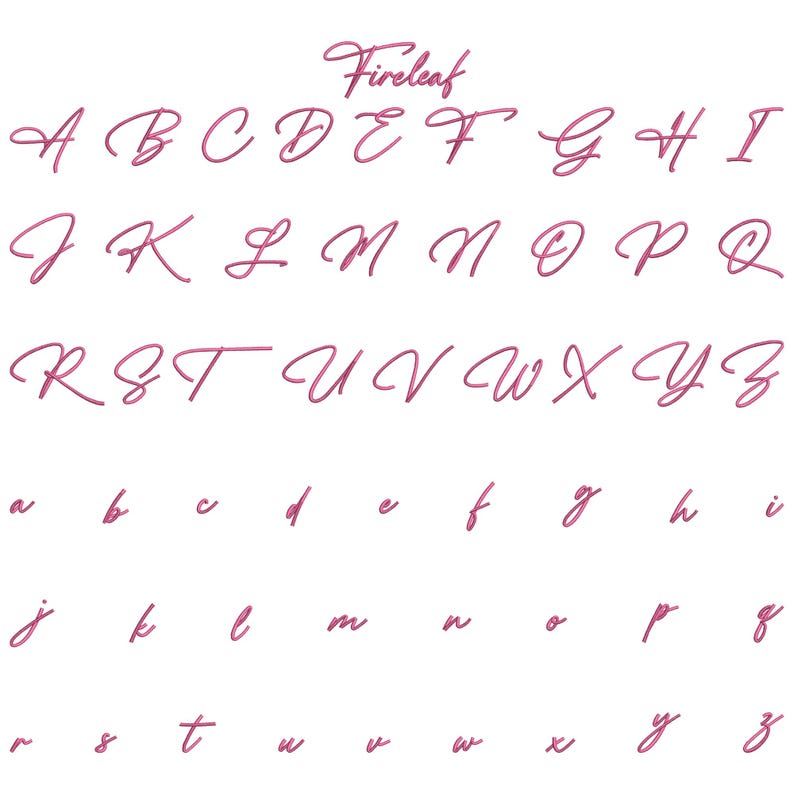 Fireleaf
A B C D E F G H I
J K L M N O P Q
R S T U V W X Y Z
a b c d e f g h i
j k l m n o p q
r s t u v w x y z